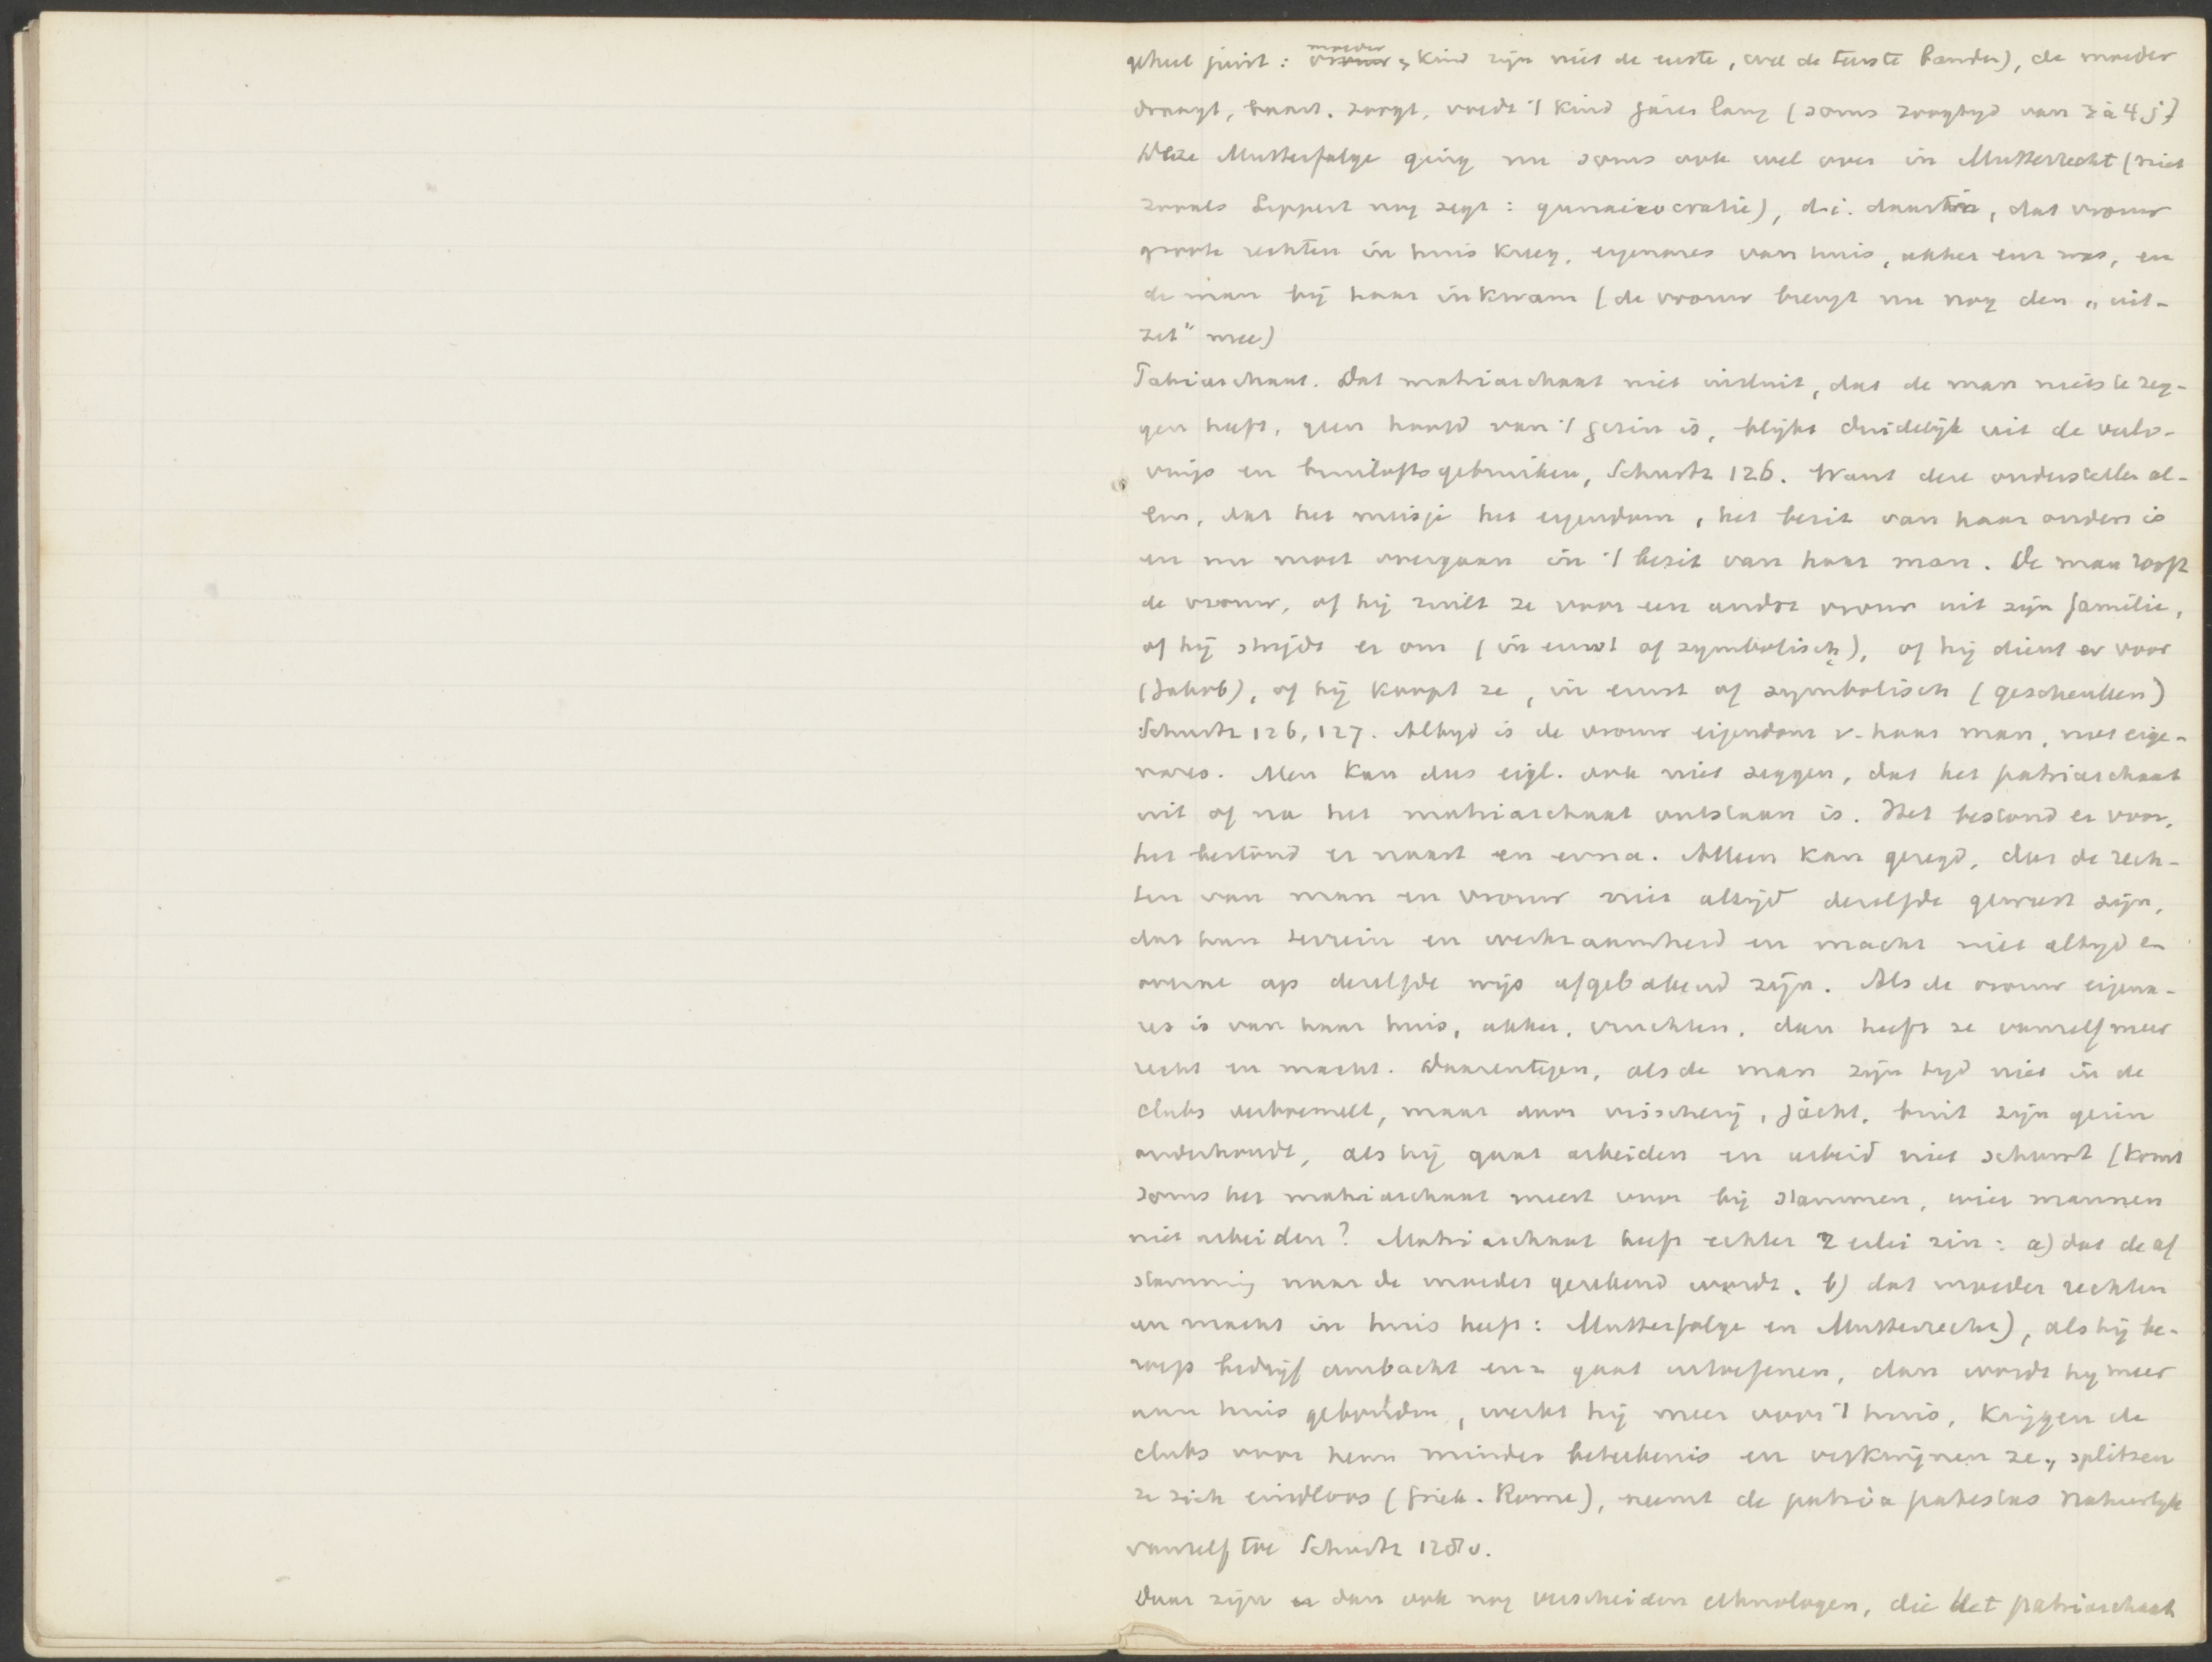 geheel juist: moeder vrouw & kind zijn niet de eerste, wel de teerste banden), de moeder
draagt, baart. zoogt, voedt 't kind jaren lang (soms zoogtijd van 3 à 4 j.)
Deze Mutterfolge ging nu soms ook wel over in Mutterrecht (niet
zooals Lippert nog zegt: gunaikocratie), d.i. daarin, dat vrouw
groote rechten in huis kreeg, eigenares van huis, akker enz was, en
de man bij haar inkwam (de vrouw brengt nu nog den „uit-
zet" mee)
Patriarchaat. Dat matriarchaat niet insluit, dat de man niets te zeg-
gen heeft, geen hoofd van 't gezin is, blijkt duidelijk uit de verlo-
vings en bruiloftsgebruiken, Schurtz 126. Want deze onderstellen al-
len, dat het meisje het eigendom, het bezit van haar ouders is
en nu moet overgaan in 't bezit van haar man. De man rooft
de vrouw, of hij ruilt ze voor een andere vrouw uit zijn familie,
of hij strijdt er om (in ernst of symbolisch), of hij dient er voor
(Jakob), of hij koopt ze, in ernst of symbolisch (geschenken)
Schurtz 126, 127. Altijd is de vrouw eigendom v. haar man, niet eige-
nares. Men kan dus eigl. ook niet zeggen, dat het patriarchaat
uit of na het matriarchaat ontstaan is. Het bestond er voor,
het bestond er naast en erna. Alleen kan gezegd, dat de rech-
ten van man en vrouw niet altijd dezelfde geweest zijn,
dat hun terrein en werkzaamheid en macht niet altijd en
overal op dezelfde wijs afgebakend zijn. Als de vrouw eigena-
res is van haar huis, akker, vruchten, dan heeft ze vanzelf meer
recht en macht. Daarentegen, als de man zijn tijd niet in de
clubs verbeuzelt, maar door visscherij, jacht, buit zijn gezin
onderhoudt, als hij gaat arbeiden en arbeid niet schuwt (komt
soms het matriarchaat meest voor bij stammen, wier mannen
niet arbeiden? Matriarchaat heeft echter 2 erlei zin: a) dat de af
stamming naar de moeder gerekend wordt. b) dat moeder rechten
en macht in huis heeft: Mutterfolge en Mutterrecht), als hij be-
roep bedrijf ambacht enz gaat uitoefenen, dan wordt hij meer
aan huis gebonden, werkt hij meer voor 't huis, krijgen de
clubs voor hem minder beteekenis en verkwijnen ze, splitsen
ze zich eindloos (Griek. Rome), neemt de patria potestas natuurlijk
vanzelf toe Schurtz 128v.
Daar zijn er dan ook nog verscheiden ethnologen, die het patriarchaat